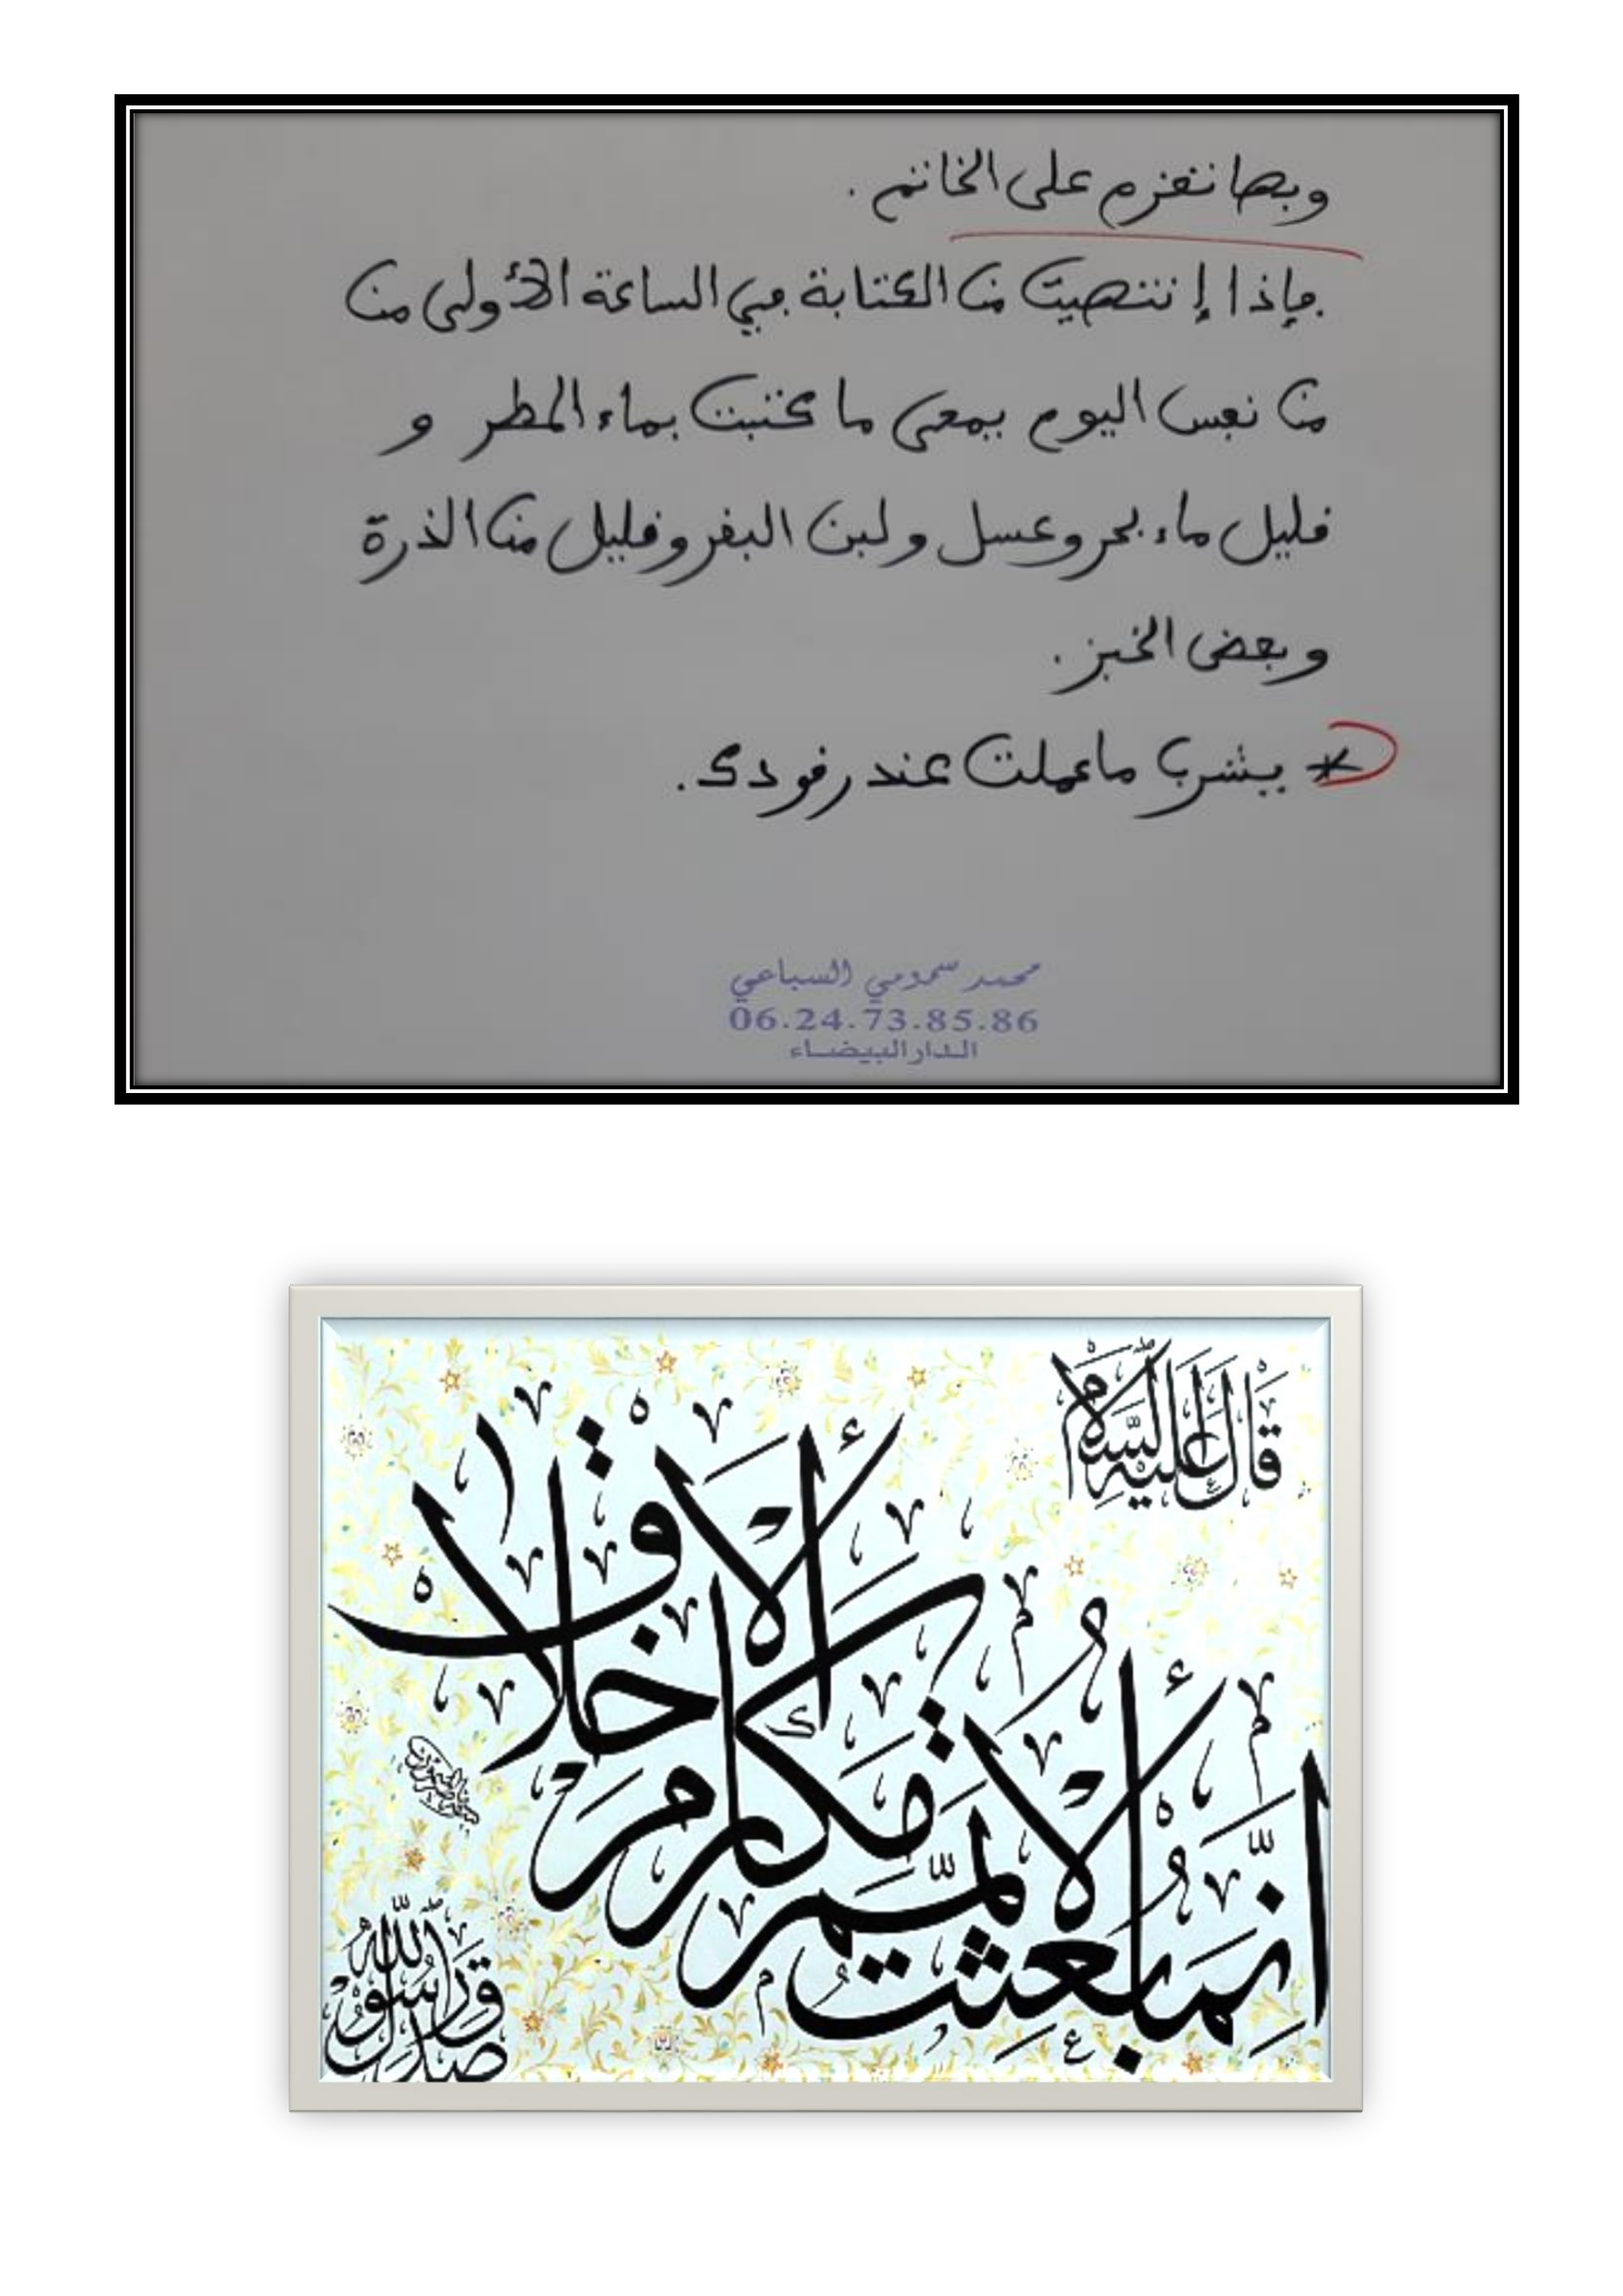 وبها نعزم على الخاتم .
فإذا إنتهيت من الكتابة في الساعة الأولى من
من نفس اليوم يمحى ما كتبت بماء المطر و
قليل ماء بحر وعسل ولبن البقر وقليل من الذرة
وبعض الخبز .
* يشرب ما عملت عند رقودك .
محمد سمومي السباعي
06.24.73.85.86
الدار البيضاء
قال عليه السلام
إنما بعثت لأتمم مكارم الأخلاق
صدق رسول الله